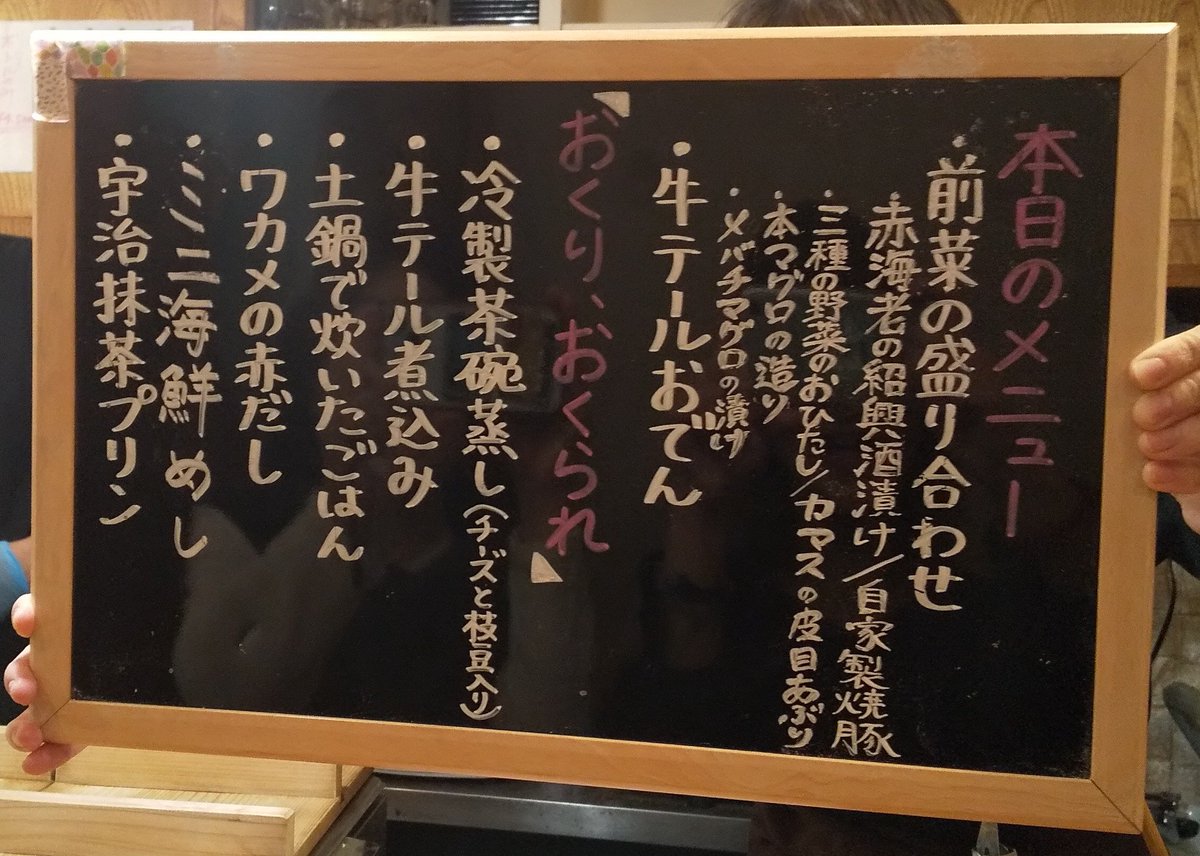 本日のメニュー
・前菜の盛り合わせ
・赤海老の紹興酒漬け/自家製焼豚
・三種の野菜のおひたし/カマスの皮目あぶり
・本マグロの造り
・メバチマグロの漬け
・牛テールおでん
「おくり、おくられ」
・冷製茶碗蒸し(チーズと枝豆入り)
・牛テール煮込み
・土鍋で炊いたごはん
・ワカメの赤だし
・ミニ海鮮めし
・宇治抹茶プリン